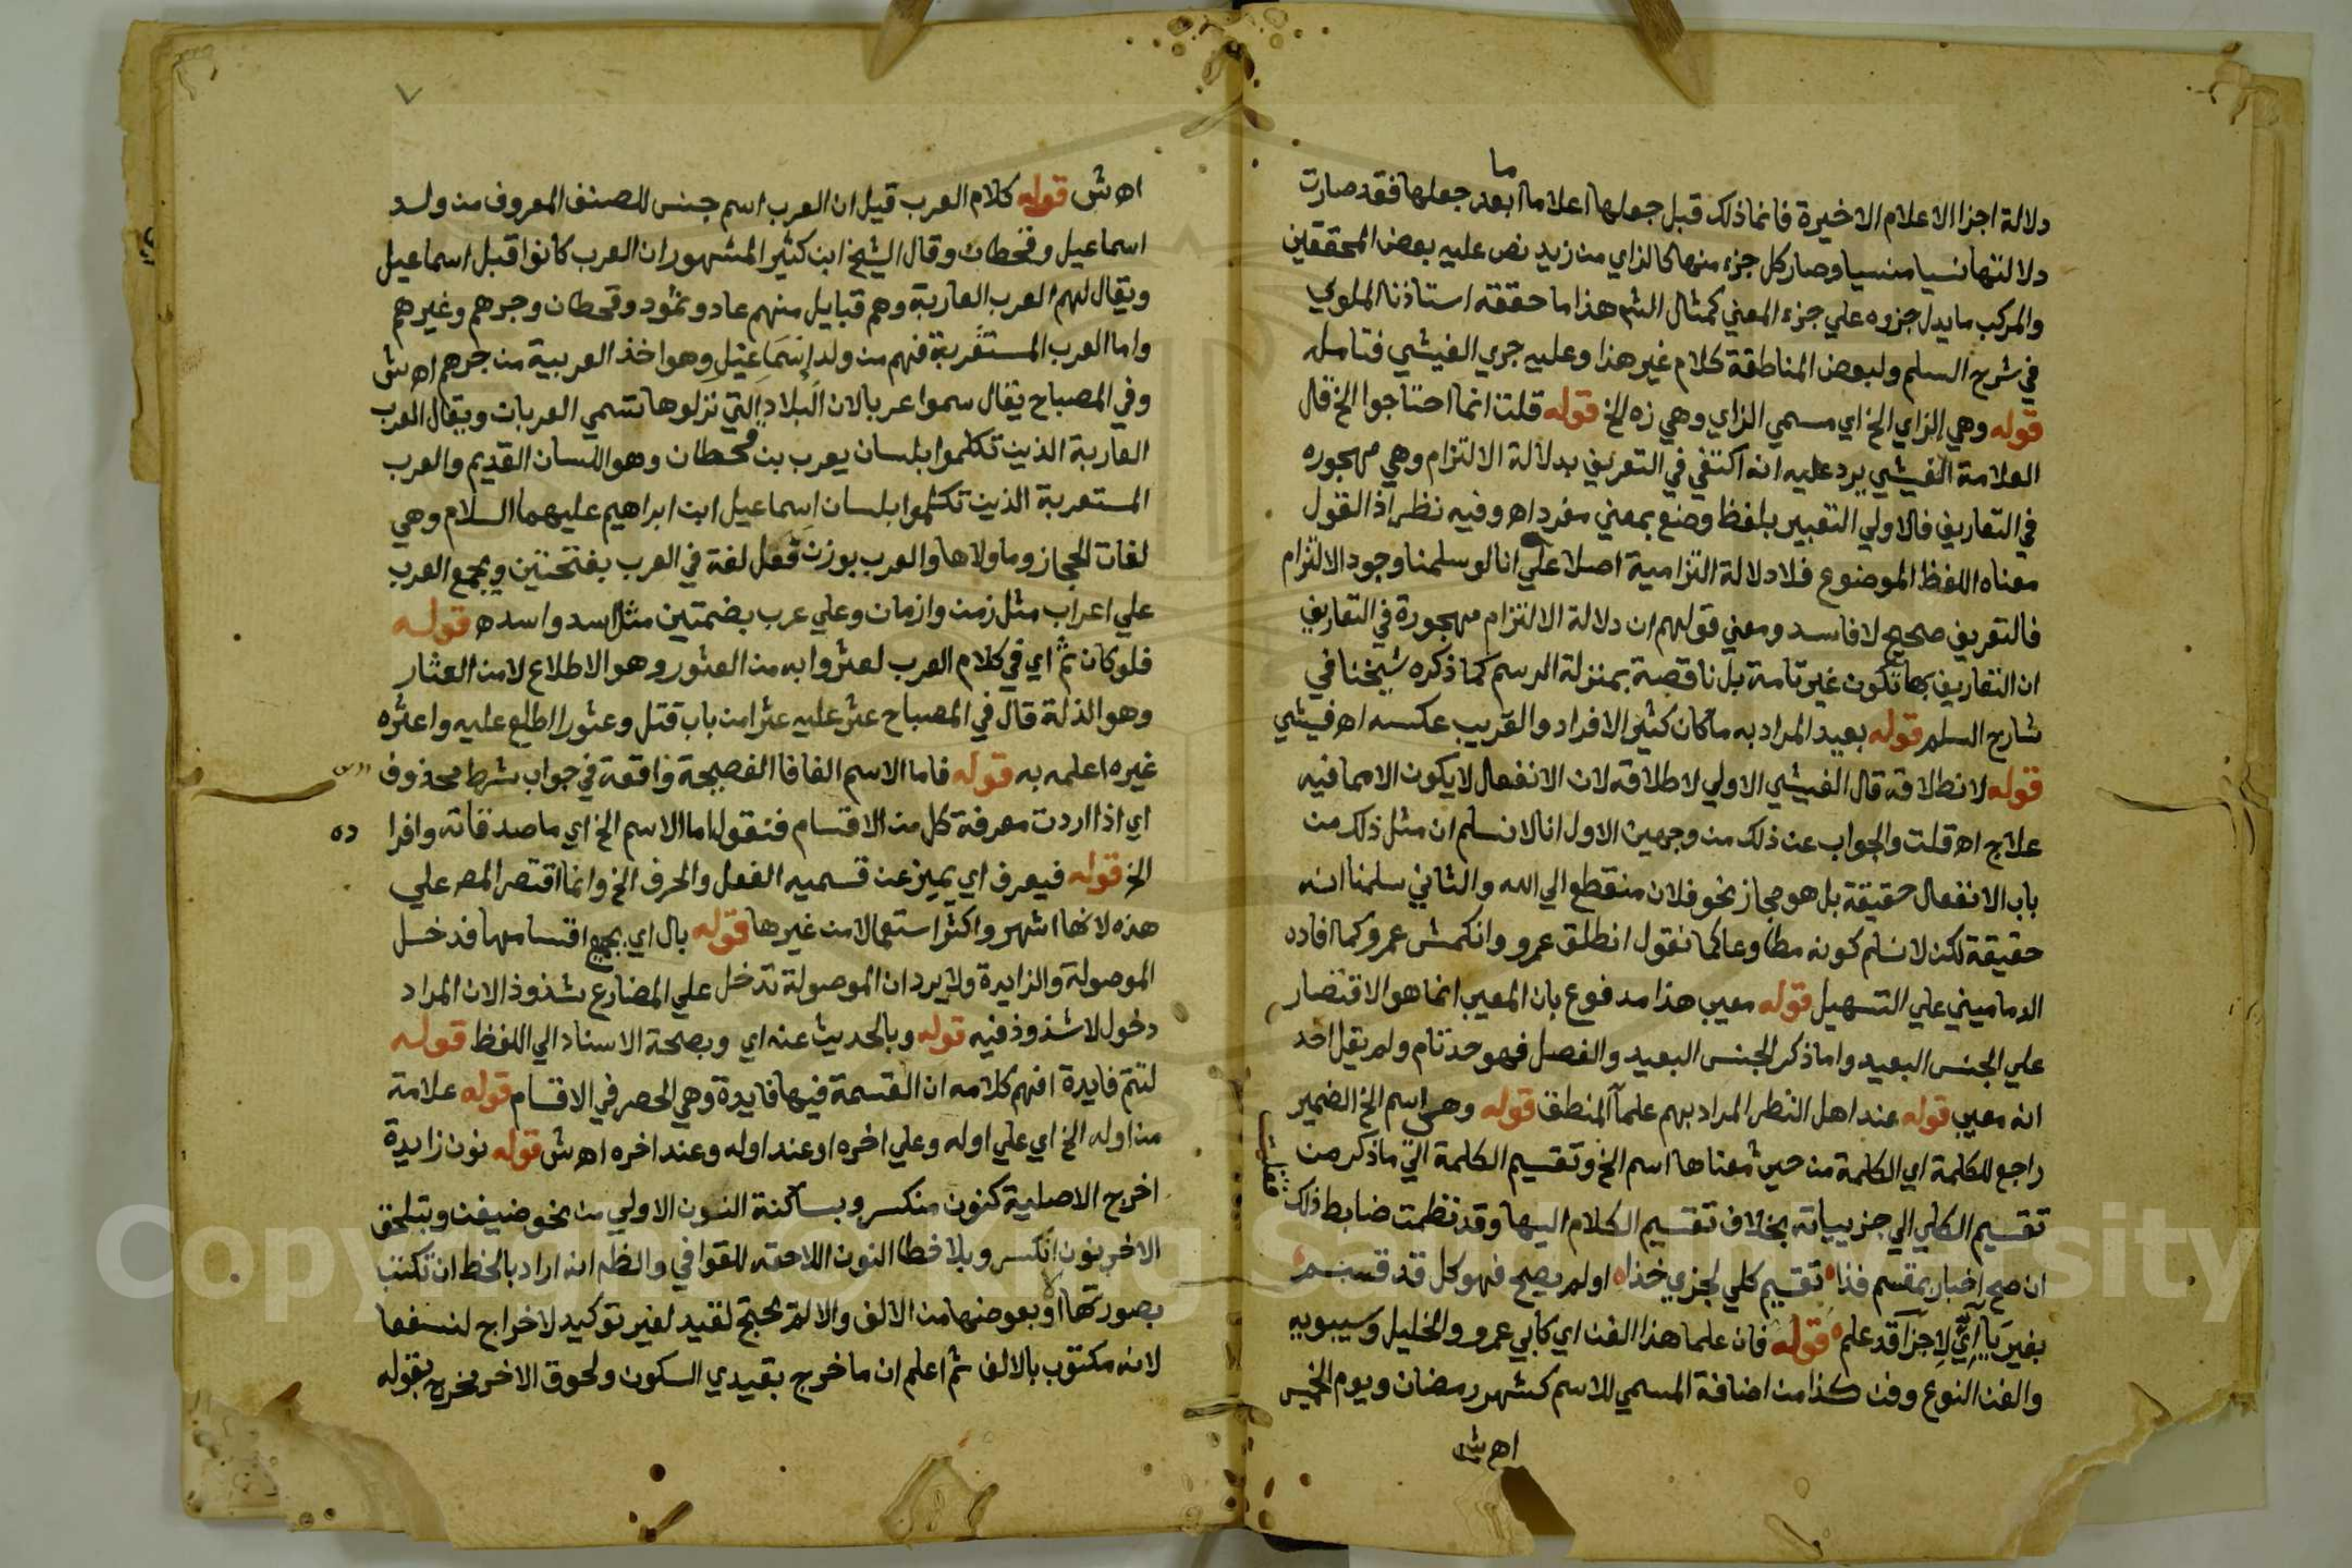 ما
دلالة اجزا الاعلام الاخيرة فانما ذلك قبل جعلها اعلاما ابعد جعلها فقد صارت
دلالتها نسيا منسيا وصار كل جزء منها كالزاي من زيد نص عليه بعض المحققين
والمركب ما يدل جزوه علي جزء المعني كمثال الشم هذا ما حققه استاذنا الملوي
في شرح السلم ولبعض المناطقة كلام غير هذا وعليه جري الفيشي فتامله
قوله وهي الزاي الخ اي مسمي الزاي وهي زه الخ قوله قلت انما احتاجوا الخ قال
العلامة الفيشي يرد عليه انه اكتفي في التعريف بدلالة الالتزام وهي مهجوره
في التعاريف فالاولي التعبير بلفظ وضع بمعني مفرد اه وفيه نظر اذ القول
معناه اللفظ الموضوع فلا دلالة التزامية اصلا علي انا لو سلمنا وجود الالتزام
فالتعريف صحيح لا فاسد ومعني قولهم ان دلالة الالتزام مهجورة في التعاريف
ان التعاريف بها تكون غير تامة بل ناقصة بمنزلة الرسم كما ذكره شيخنا في
شارح السلم قوله بعيد المراد به ما كان كثير الافراد والقريب عكسه اه فيشي
قوله لانطلاقه قال الفيشي الاولي لاطلاقه لان الانفعال لا يكون الا مما فيه
علاج اه قلت والجواب عن ذلك من وجهين الاول انا لا نسلم ان مثل ذلك من
باب الانفعال حقيقة بل هو مجاز نحو فلان منقطع الي الله والثاني سلمنا انه
حقيقة لكن لا نسلم كونه مطاوعا كما نقول انطلق عمرو وانكمش عمرو كما افاده
الدماميني علي التسهيل قوله معيب هذا مدفوع بان المعيب انما هو الاقتصار
علي الجنس البعيد واما ذكر الجنس البعيد والفصل فهو حد تام ولم يقل احد
انه معيب قوله عند اهل النظر المراد بهم علما المنطق قوله وهي اسم الخ الضمير
راجع للكلمة اي الكلمة من حيث معناها اسم الخ وتقسيم الكلمة الي ما ذكر من
تقسيم الكلي الي جزيياته بخلاف تقسيم الكلام اليها وقد نظمت ضابط ذلك
فقلت
ان صح اخبار بمقسم فذا تقسيم كلي لجزي خذا او لم يصح فهو كل قد قسم
بغير يا اي لاجزا قد علم قوله فان علما هذا الفن اي كابي عمرو والخليل وسيبويه
والفن النوع وفن كذا من اضافة المسمي للاسم كشهر رمضان ويوم الخميس
اه ش
اه ش قوله كلام العرب قيل ان العرب اسم جنس للصنف المعروف من ولد
اسماعيل وقحطان وقال الشيخ ابن كثير المشهور ان العرب كانوا قبل اسماعيل
ويقال لهم العرب العاربة وهم قبايل منهم عاد وثمود وقحطان وجرهم وغيرهم
واما العرب المستعربة فهم من ولد إسماعيل وهو اخذ العربية من جرهم اه ش
وفي المصباح يقال سموا عربا لان البلاد التي نزلوها تسمي العربات ويقال العرب
العاربة الذين تكلموا بلسان يعرب بن قحطان وهو اللسان القديم والعرب
المستعربة الذين تكلموا بلسان اسماعيل ابن ابراهيم عليهما السلام وهي
لغات الحجاز وما ولاها والعرب بوزن قفل لغة في العرب بفتحتين ويجمع العرب
علي اعراب مثل زمن وازمان وعلي عرب بضمتين مثل اسد واسد ه قوله
فلو كان ثم اي في كلام العرب لعثروا به من العثور وهو الاطلاع لا من العثار
وهو الذلة قال في المصباح عثر عليه عثرا من باب قتل وعثورا اطلع عليه واعثره
غيره اعلمه به قوله فاما الاسم الفا فا الفصيحة واقعة في جواب شرط محذوف
اي اذا اردت معرفة كل من الاقسام فنقول اما الاسم الخ اي ما صدقاته وافرا
ده
الخ قوله فيعرف اي يميز عن قسميه الفعل والحرف الخ وانما اقتصر المصـ علي
هذه لانها اشهر واكثر استعمالا من غيرها قوله بال اي بجميع اقسامها فدخل
الموصولة والزايدة ولا يرد ان الموصولة تدخل علي المضارع بشذوذ الان المراد
دخول لا شذوذ فيه قوله وبالحديث عنه اي وبصحة الاسناد الي اللفظ قوله
لتتم فايدة افهم كلامه ان القسمة فيها فايدة وهي الحصر في الاقسام قوله علامة
من اوله الخ اي علي اوله وعلي اخره او عند اوله وعند اخره اه ش قوله نون زايدة
اخرج الاصلية كنون منكسر وبساكنة النون الاولي من نحو ضيفن وبتلحق
الاخر نون انكسر وبلا خطا النون اللاحقه للقوافي والظم انه اراد بالخط ان تكتب
بصورتها او بعوضها من الالف والا لم يحتج لقيد لغير توكيد لاخراج لنسفعا
لانه مكتوب بالالف ثم اعلم ان ما خرج بقيدي السكون ولحوق الاخر مخرج بقوله